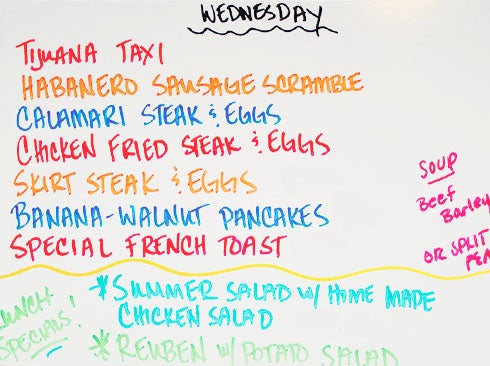 WEDNESDAY
TIJUANA TAXI
HABANERO SAUSAGE SCRAMBLE
CALAMARI STEAK & EGGS
CHICKEN FRIED STEAK & EGGS
SKIRT STEAK & EGGS
BANANA-WALNUT PANCAKES
SPECIAL FRENCH TOAST
SOUP
Beef
Barley
OR SPLIT
PEA
LUNCH
SPECIALS!
*SUMMER SALAD W/ HOME MADE
CHICKEN SALAD
*REUBEN W/ POTATO SALAD